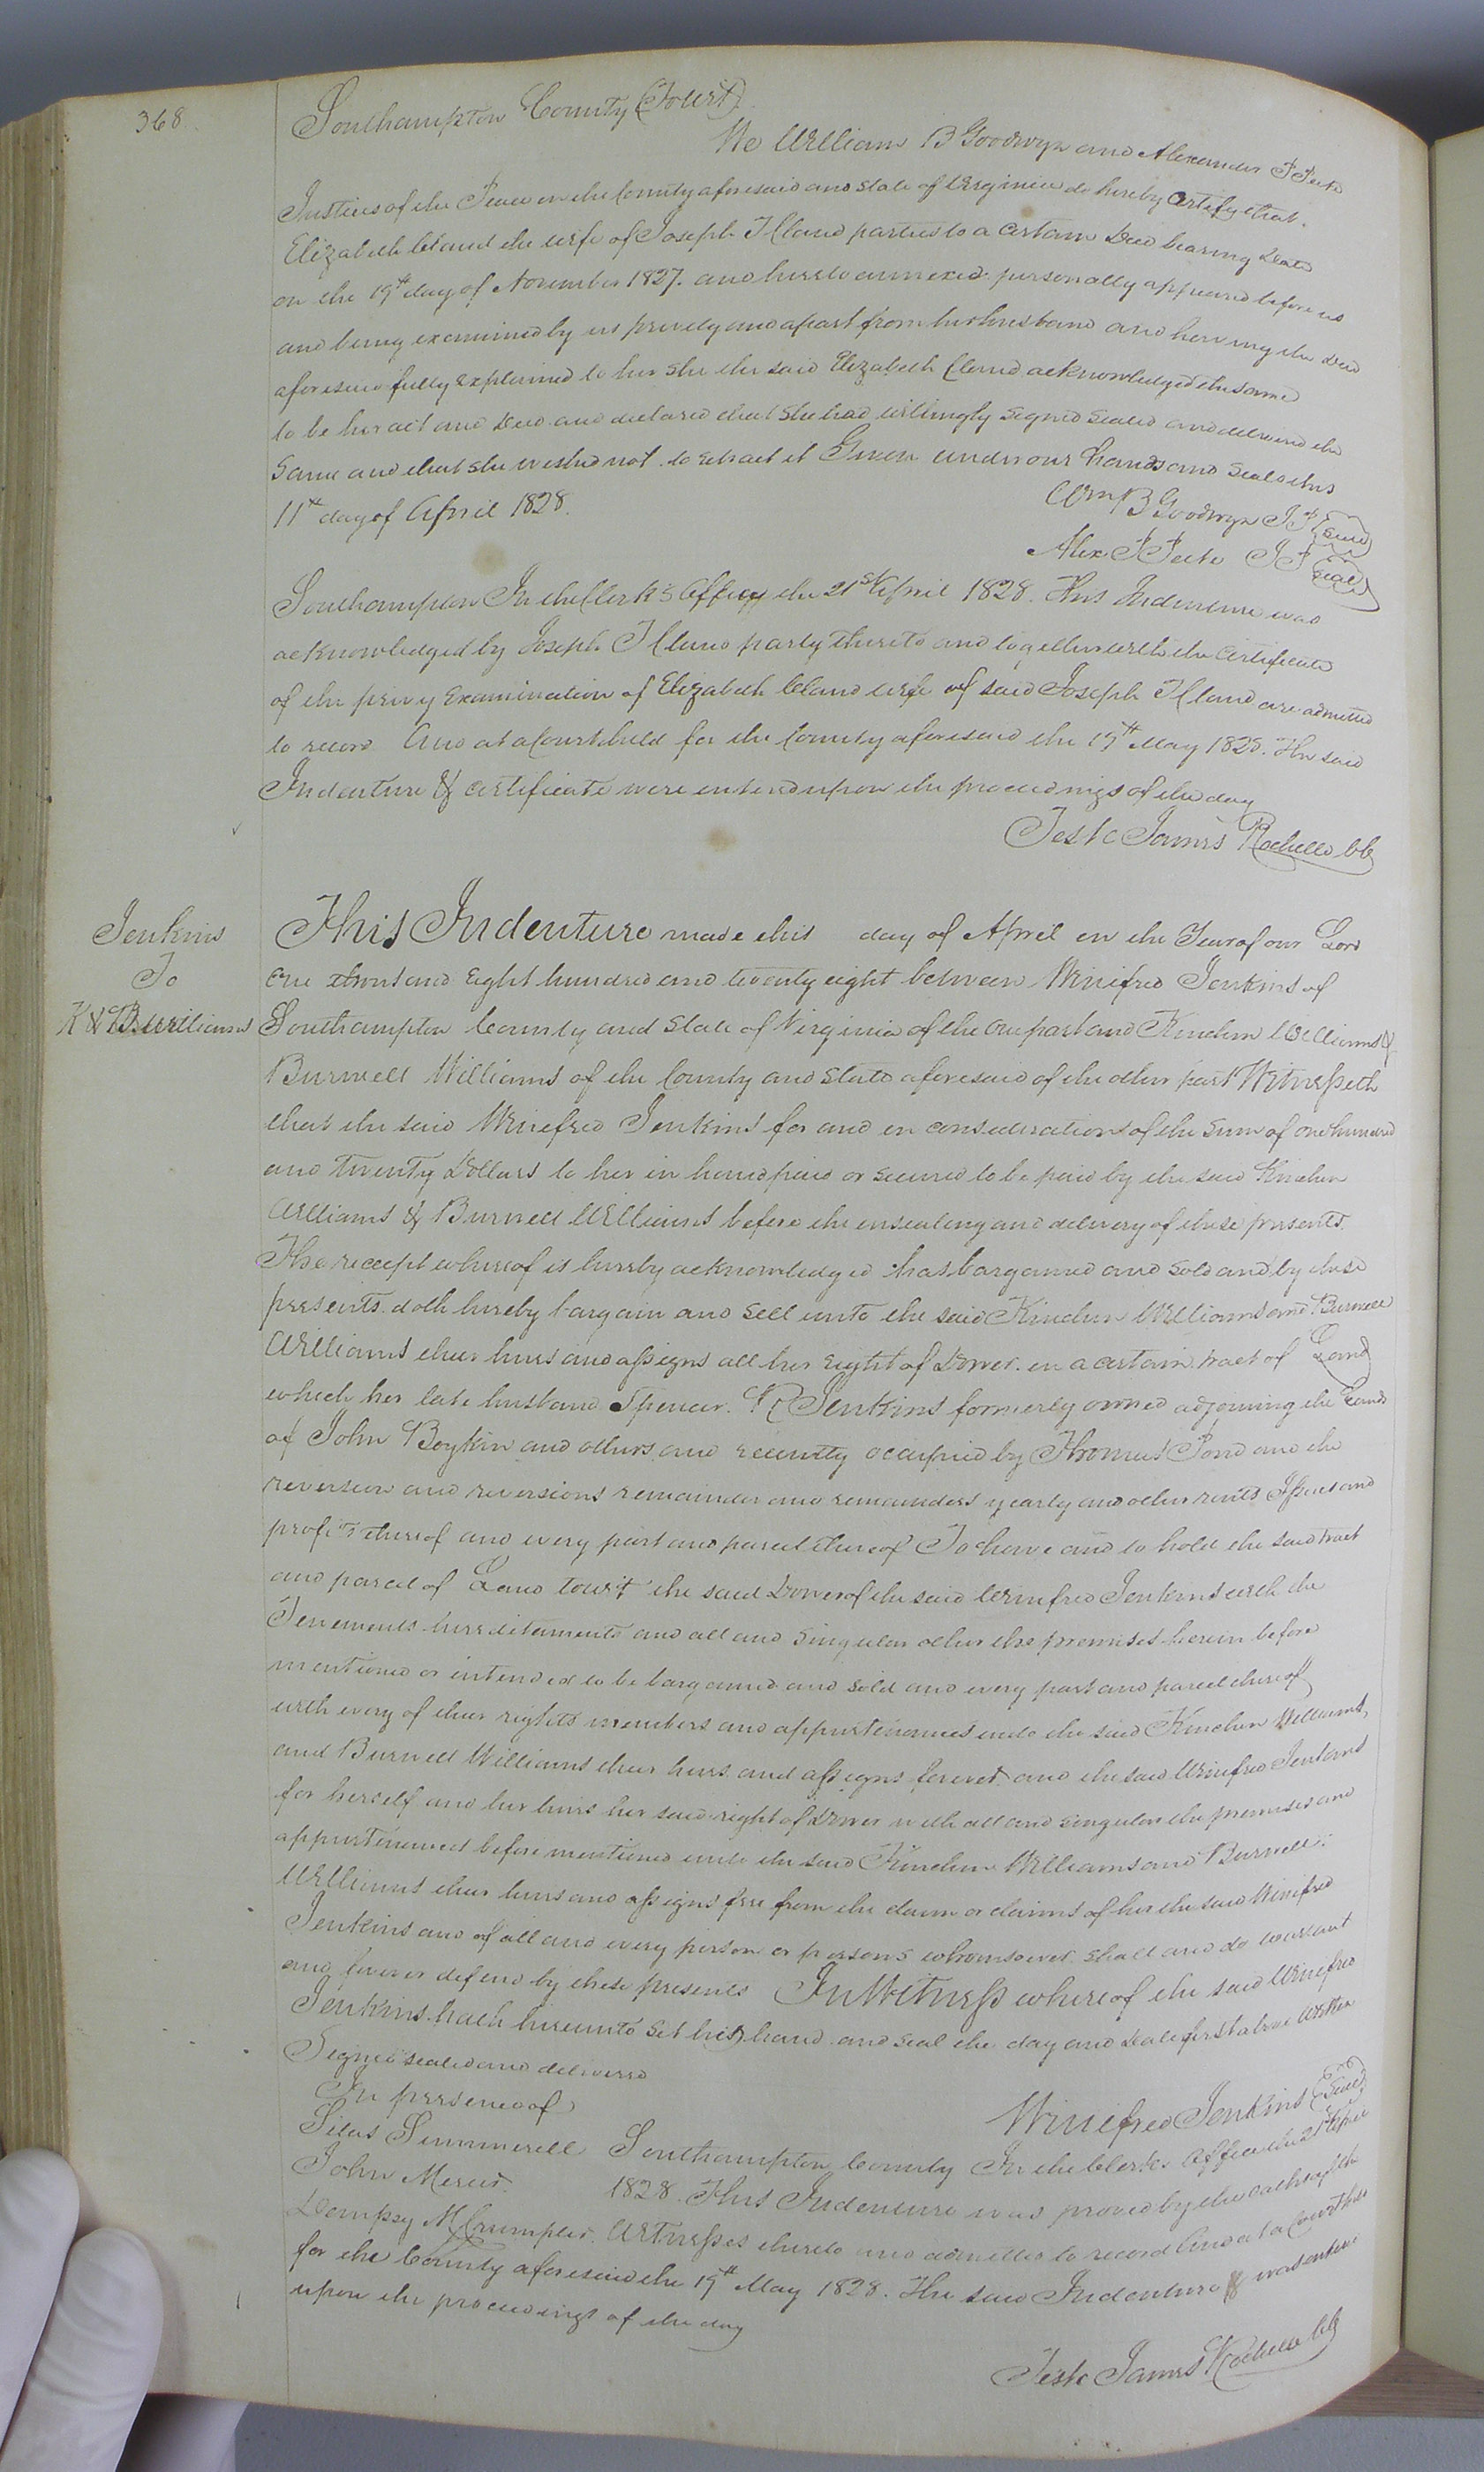 368
Southampton County (Court)
We William B Goodwyn and Alexander P Peete
Justices of the Peace in the County aforesaid and State of Virginia do hereby Certify that
Elizabeth Cland the wife of Joseph T Cland parties to a certain Deed bearing Date
on the 19th day of November 1827. and hereto annexed personally appeared before us
and being examined by us privily and apart from her husband and having the Deed
aforesaid fully explained to her She the said Elizabeth Cland acknowledged the same
to be her act and Deed and declared that She had willingly Signed Sealed and delivered the
Same and that she wished not to retract it Given under our hands and Seals this
11th day of April 1828.
Wm B Goodwyn JP (Seal)
Alex P Peete JP (Seal)
Southampton In the Clerk's Office the 21st April 1828. This Indenture was
acknowledged by Joseph T Cland party thereto and together with the Certificate
of the privy Examination of Elizabeth Cland wife of said Joseph T Cland are admitted
to record And at a Court held for the County aforesaid the 19th May 1828. The said
Indenture & certificate were entered upon the proceedings of the day
Teste James Rochelle CC
Jenkins
To
K & B. Williams
This Indenture made this day of April in the Year of our Lord
One thousand Eight hundred and twenty eight between Winifred Jenkins of
Southampton County and State of Virginia of the one part and Kinchen Williams &
Burwell Williams of the County and State aforesaid of the other part Witnesseth
that the said Winefred Jenkins for and in considerations of the Sum of one hundred
and Twenty Dollars to her in hand paid or secured to be paid by the said Kinchen
Williams & Burwell Williams before the ensealing and delivery of these presents.
The receipt whereof is hereby acknowledged has bargained and Sold and by these
presents doth hereby bargain and Sell unto the said Kinchen Williams and Burwell
Williams their heirs and assigns all her right of Dower in a certain tract of Land
which her late husband Spencer R Jenkins formerly owned adjoining the Lands
of John Boykin and others and recently occupied by Thomas Pond and the
reversion and reversions remainder and remainders yearly and other rents Issues and
profits thereof and every part and parcel thereof To have and to hold the said tract
and parcel of Land towit the said Dower of the said Winefred Jenkins with the
Tenements hereditaments and all and Singular other the premises herein before
mentioned or intended to be bargained and Sold and every part and parcel thereof
with every of their rights members and appurtenances unto the said Kinchen Williams,
and Burwell Williams their heirs and assigns forever and the said Winefred Jenkins
for herself and her heirs her said right of Dower with all and Singular the premises and
appurtenances before mentioned unto the said Kinchen Williams and Burwell
Williams their heirs and assigns free from the claim or claims of her the said Winifred
Jenkins and of all and every person or persons whomsoever shall and do warrant
and forever defend by these presents In Witness whereof the said Winefred
Jenkins hath hereunto Set her hand and Seal the day and Date first above Written
Signed sealed and delivered
In presence of
Winefred Jenkins (Seal)
Silas Summerell
John
Dempsey M Crumpler
Southampton County In the Clerks Office the 21st Apl
1828. This Indenture was proved by the oaths of the
Witnesses thereto and admitted to record And at a Court held
for the County aforesaid the 19th May 1828. The said Indenture was entered
upon the proceedings of the day
Teste James Rochelle CC